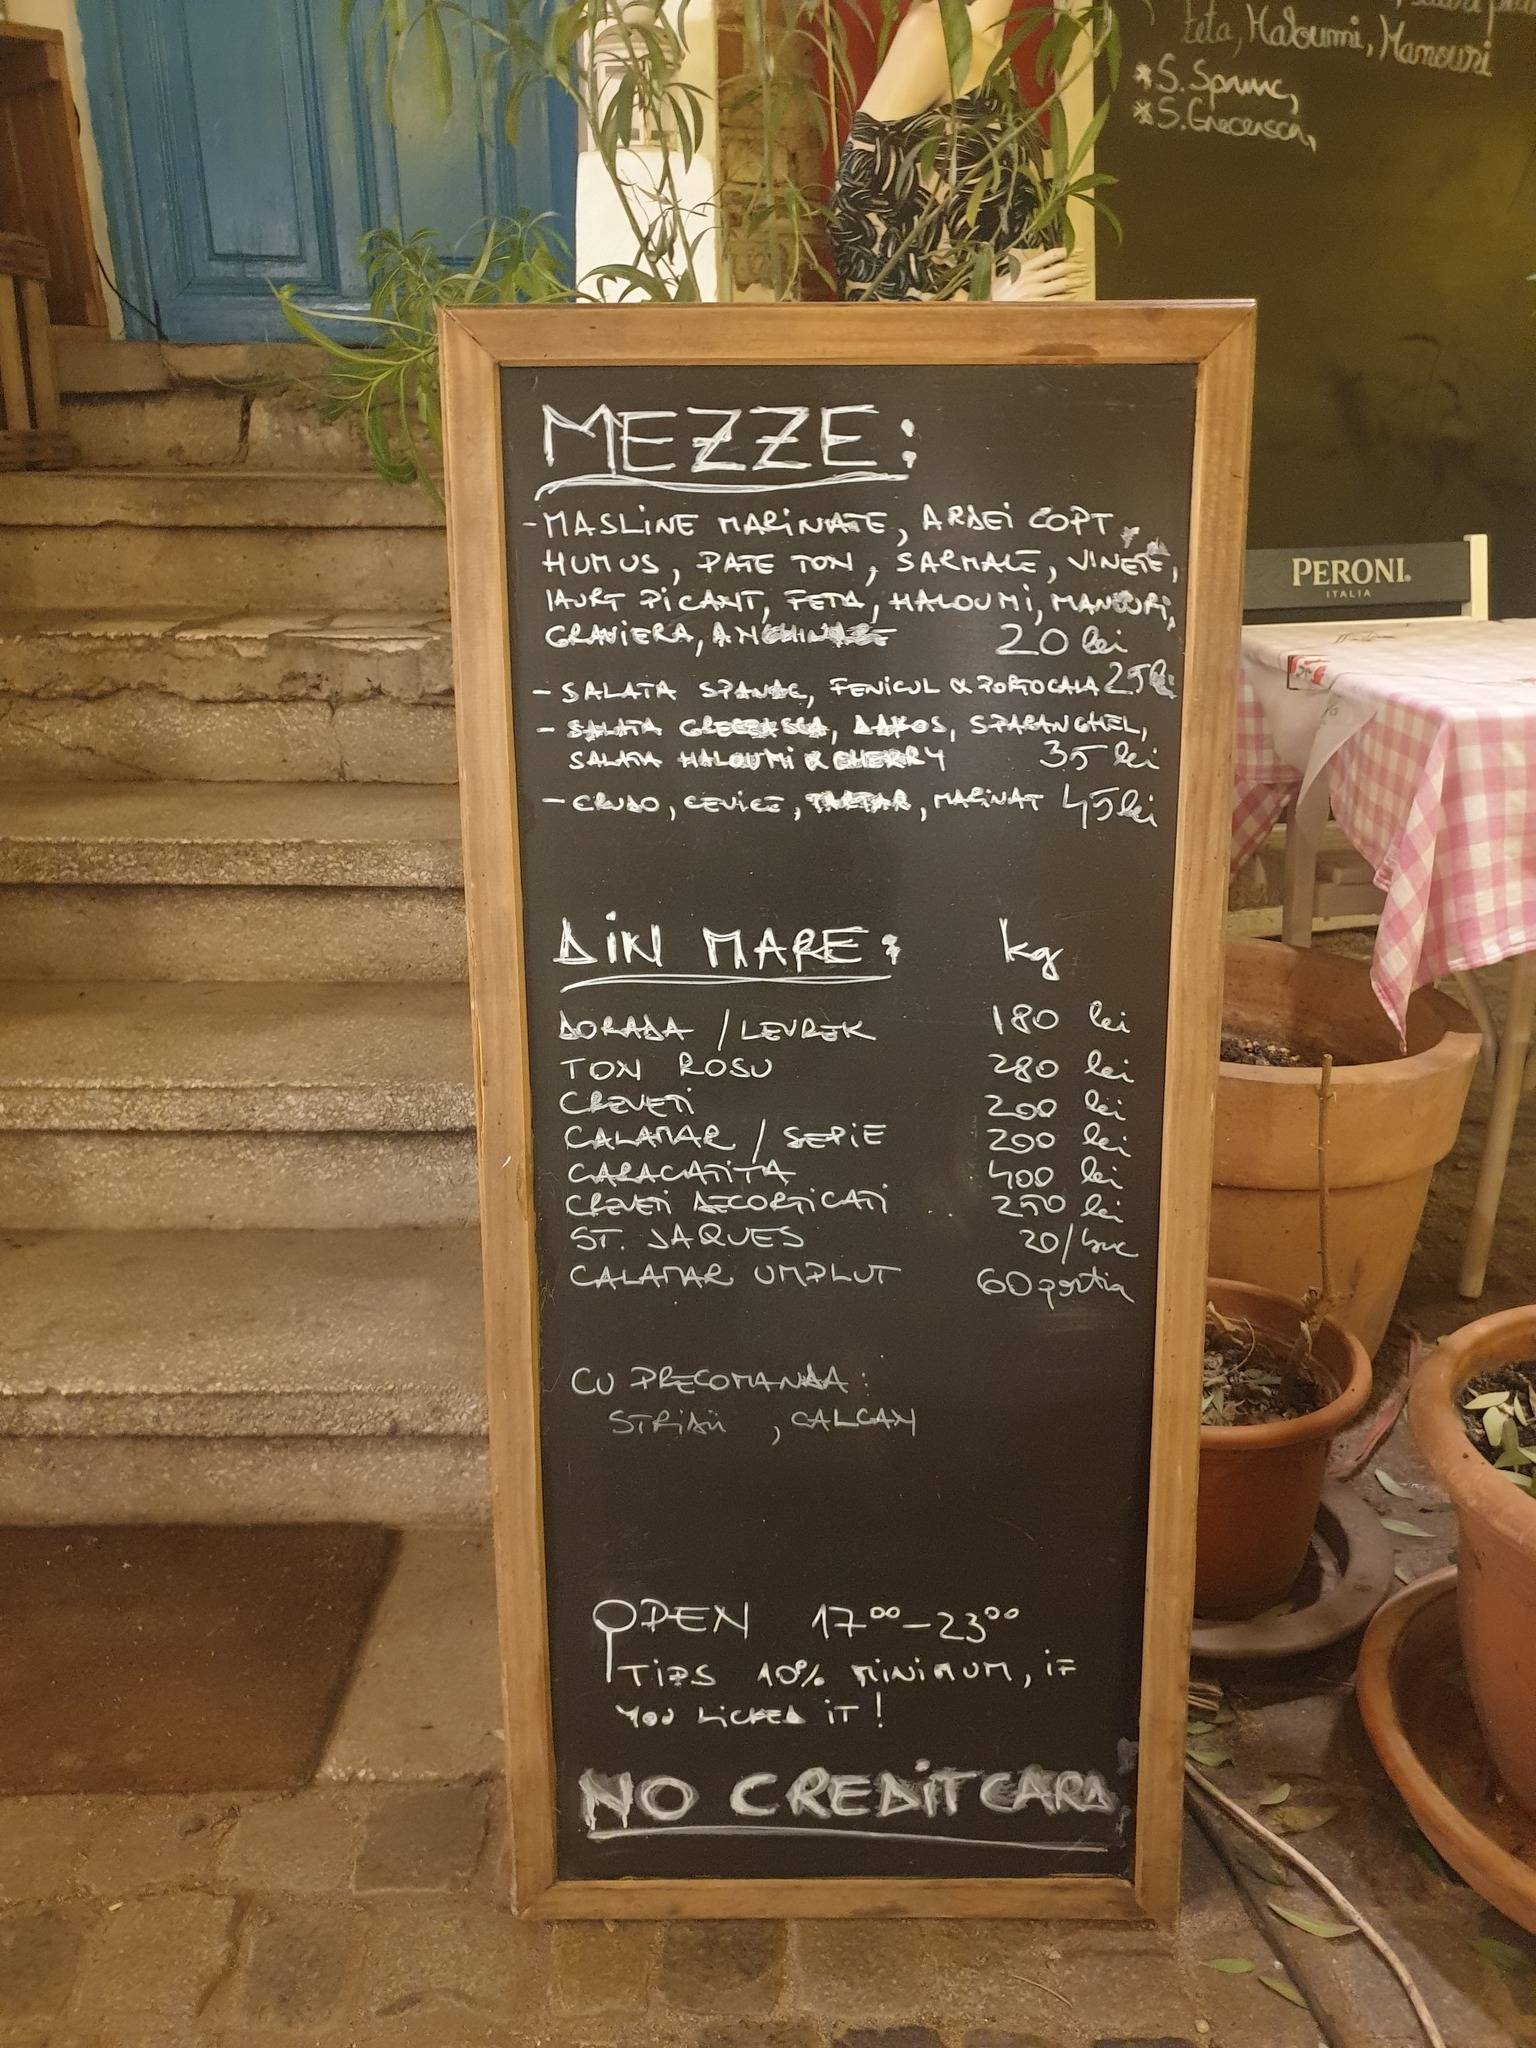 feta, Haloumi, Manouri
*S. Spanac,
*S. Grecească,
PERONI
ITALIA
MEZZE:
- MASLINE MARINATE, ARDEI COPT,
HUMUS, PATE TON, SARMALE, VINETE,
IAURT PICANT, FETA, HALOUMI, MANOURI,
GRAVIERA, 20 lei
- SALATA SPANAC, FENICUL & PORTOCALA 25 lei
- SALATA GRECEASCA, DAKOS, SPARANGHEL,
SALATA HALOUMI & CHERRY 35 lei
- CRUDO, CEVICE, TARTAR, MARINAT 45 lei
DIN MARE: kg
DORADA / LEVREK 180 lei
TON ROSU 280 lei
CREVETI 200 lei
CALAMAR / SEPIE 200 lei
CARACATITA 400 lei
CREVETI DECORTICATI 250 lei
ST. JAQUES 20/buc
CALAMAR UMPLUT 60 portia
CU PRECOMANDA:
STRIDII, CALCAN
OPEN 17⁰⁰-23⁰⁰
TIPS 10% MINIMUM, IF
YOU LICKED IT!
NO CREDIT CARD